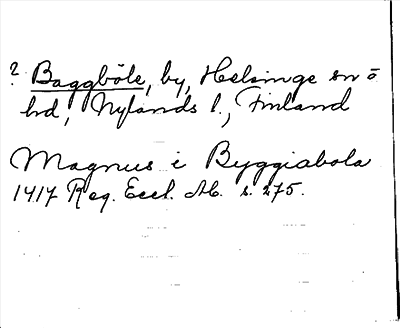 ? Baggböle, by, Helsinge sn o
hd, Nylands l., Finland
Magnus i Byggiabola
1417 Reg. Eccl. Ab. s. 275.